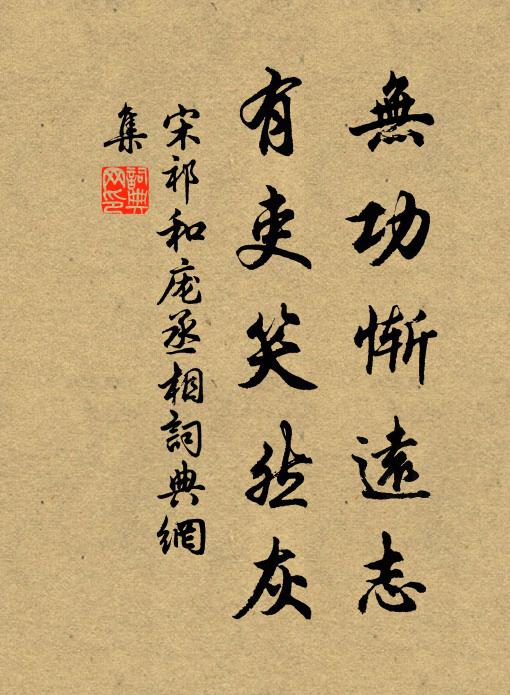 無功慚遠志
有吏笑然灰
宋祁和庞丞相詞典網
集
詞典
网印